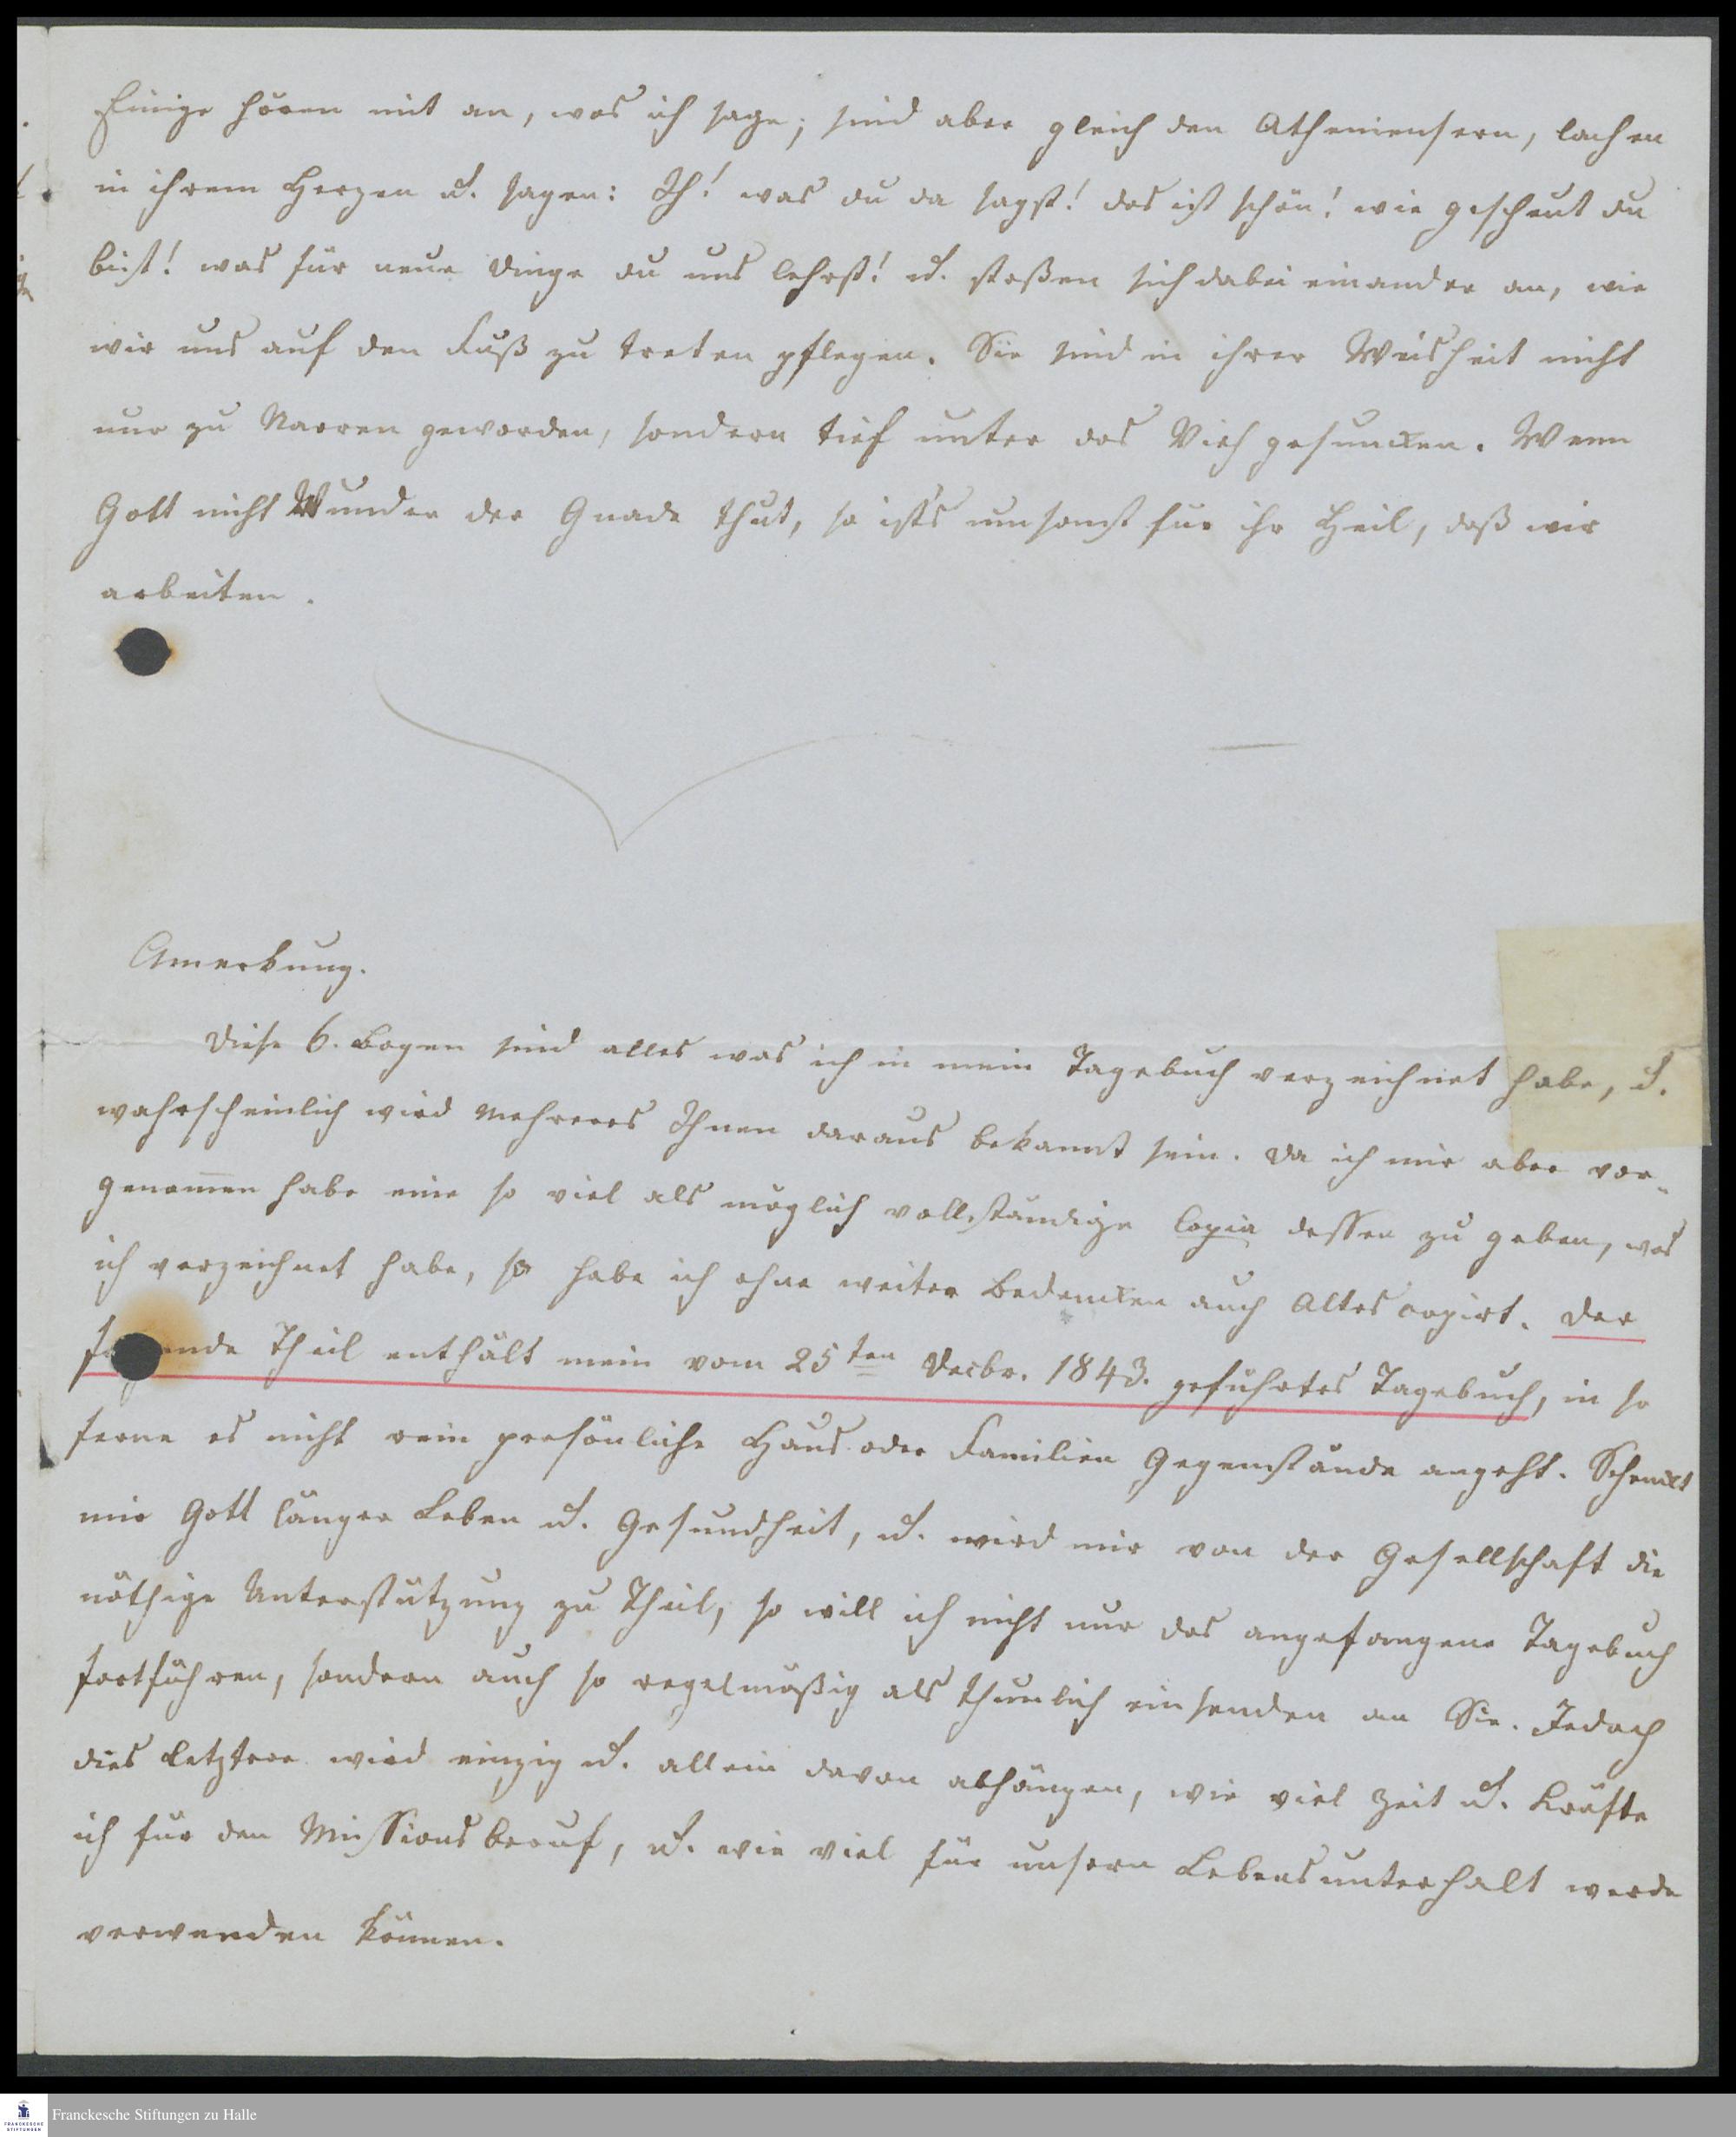 Einige hören mit an, was ich sage; sind aber gleich den Atheniensern, lachen
in ihrem Herzen u. sagen: Ih! was du da sagst! das ist schön! wie gescheut du
bist! was für neue Dinge du uns lehrst! u. stoßen sich dabei einander an, wie
wir uns auf den Fuß zu treten pflegen. Sie sind in ihrer Weisheit nicht
nur zu Narren geworden, sondern tief unter das Vieh gesuncken. Wenn
Gott nicht Wunder der Gnade thut, so ists umsonst für ihr Heil, daß wir
arbeiten.
Amerkung.
Diese 6. Bogen sind alles was ich in mein Tagebuch verzeichnet habe, u.
wahrscheinlich wird Mehreres Ihnen daraus bekannt sein. Da ich mir aber vor-
genom̅en habe eine so viel als möglich vollständige Copia dessen zu geben, was
ich verzeichnet habe, so habe ich ohne weiter Bedencken auch Altes copirt. Der
fo ende Theil enthält mein vom 25ten Decbr. 1843. geführtes Tagebuch, in so
ferne es nicht rein persönliche Haus oder Familien Gegenstände angeht. Schenckt
mir Gott länger Leben u. Gesundheit, u. wird mir von der Gesellschaft die
nöthige Unterstützung zu Theil, so will ich nicht nur das angefangene Tagebuch
fortführen, sondern auch so regelmäßig als thunlich einsenden an Sie. Jedoch
dies Letztere wird einzig u. allein davon abhängen, wie viel Zeit u. Kräfte
ich für den Missionsberuf, u. wie viel für unsern Lebensunterhalt werde
verwenden können.
Franckesche Stiftungen zu Halle
FRANCKESCHE
STIFTUNGEN